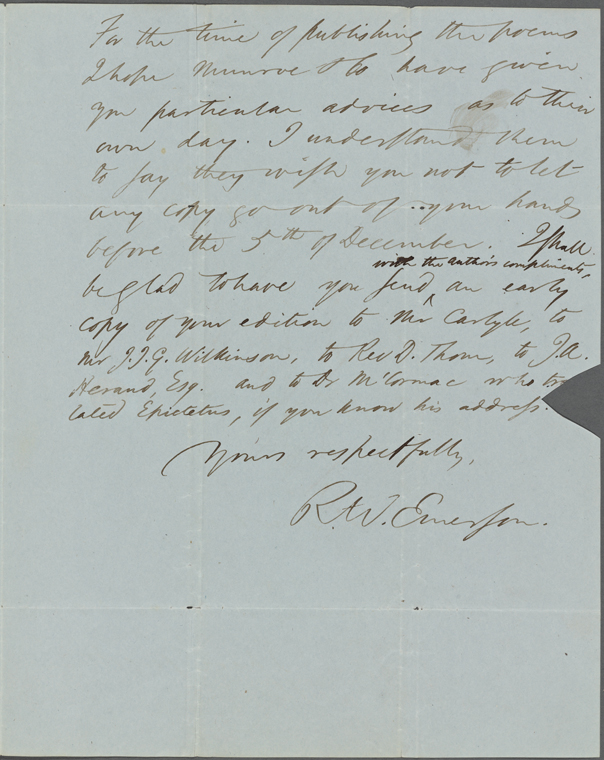 For the time of publishing the poems
I hope Munroe & Co have given
you particular advices as to their
own day. I understand them
to say they wish you not to let
any copy go out of your hands
before the 5th of December. I shall
with the author's compliments,
be glad to have you send ^ an early
copy of your edition to Mr Carlyle, to
Mr J.J.G. Wilkinson, to Rev D. Thom, to J.A.
Heraud, Esq. and to Dr McCormac who tra
lated Epictetus, if you know his address.
Yours respectfully,
R. W. Emerson.